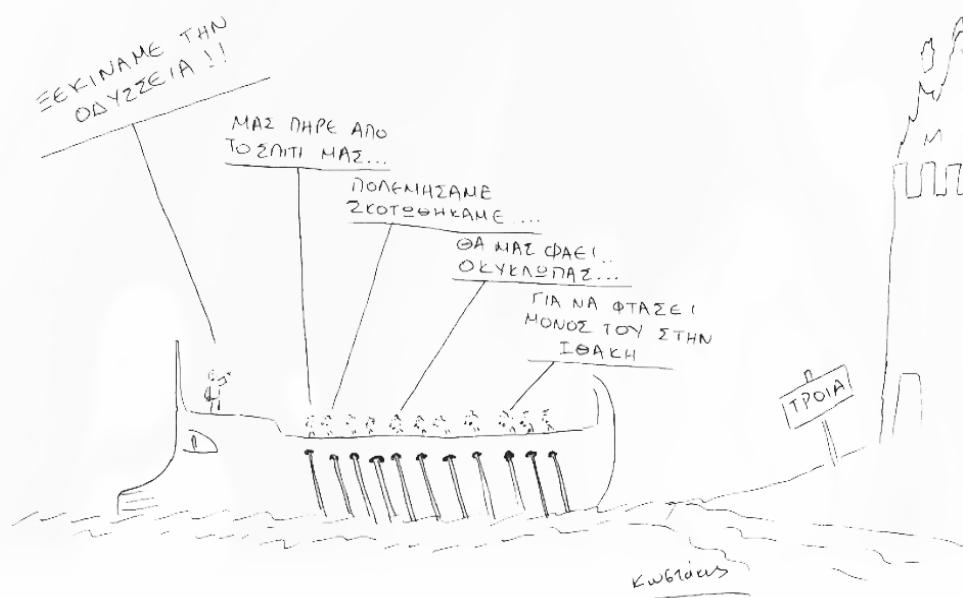 ΞΕΚΙΝΑΜΕ ΤΗΝ
ΟΔΥΣΣΕΙΑ!!
ΜΑΣ ΠΗΡΕ ΑΠΟ
ΤΟ ΣΠΙΤΙ ΜΑΣ...
ΠΟΛΕΜΗΣΑΜΕ
ΣΚΟΤΩΘΗΚΑΜΕ....
ΘΑ ΜΑΣ ΦΑΕΙ..
Ο ΚΥΚΛΩΠΑΣ...
ΓΙΑ ΝΑ ΦΤΑΣΕΙ
ΜΟΝΟΣ ΤΟΥ ΣΤΗΝ
ΙΘΑΚΗ
ΤΡΟΙΑ
Κωστάκης